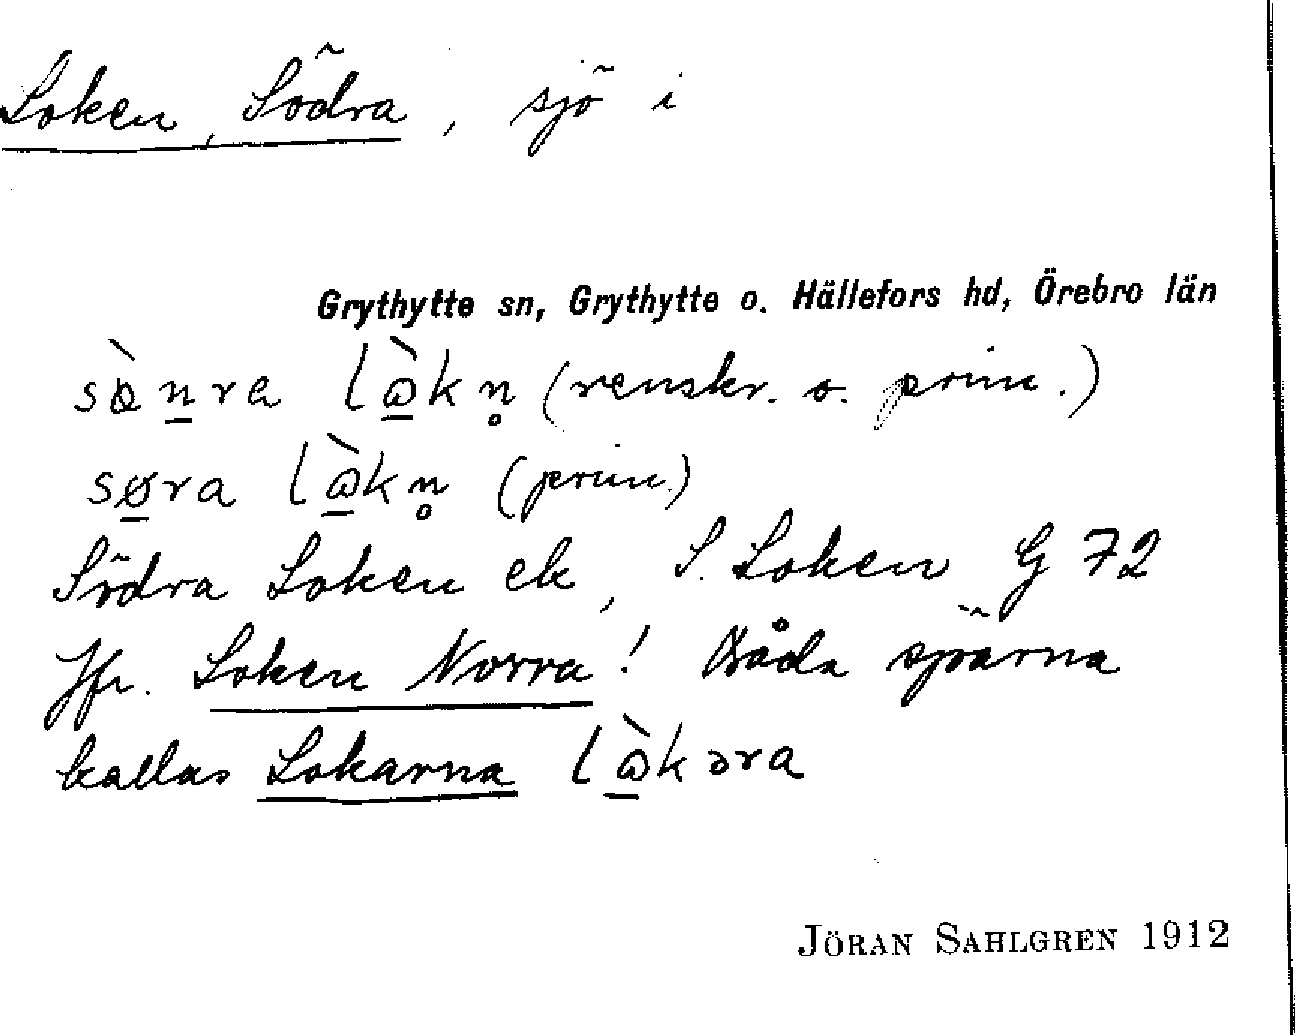 Loken, Södra, sjö i
Grythytte sn, Grythytte o. Hällefors hd, Örebro län
sòn̲ra lὼ̲kn̥ (renskr. o. prim.)
sø̲ra lὼ̲kn̥ (prim.)
Södra Loken ek, S. Loken G 72
Jfr. Loken Norra! Båda sjöarna
kallas Lokarna lὼ̲kəra
JÖRAN SAHLGREN 1912